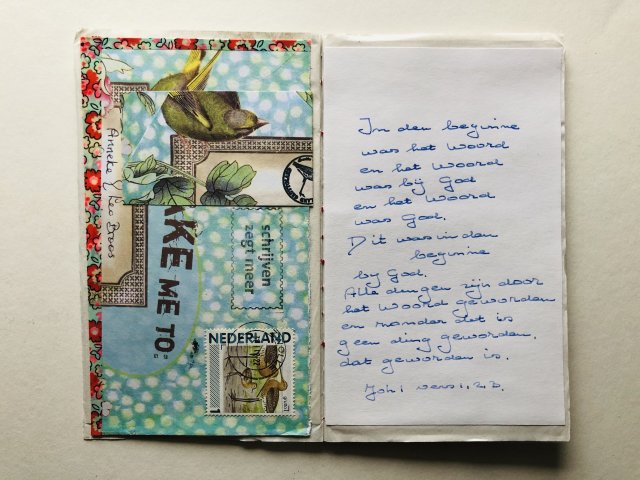 Anneke & Leo Broos
TAKE ME TO:
schrijven
zegt meer
NEDERLAND
1
In den beginne
was het Woord
en het Woord
was bij God
en het Woord
was God.
Dit was in den
beginne
by God.
Alle dingen zijn door
het Woord geworden
en zonder dit is
geen ding geworden,
dat geworden is.
Joh 1 vers 1, 2